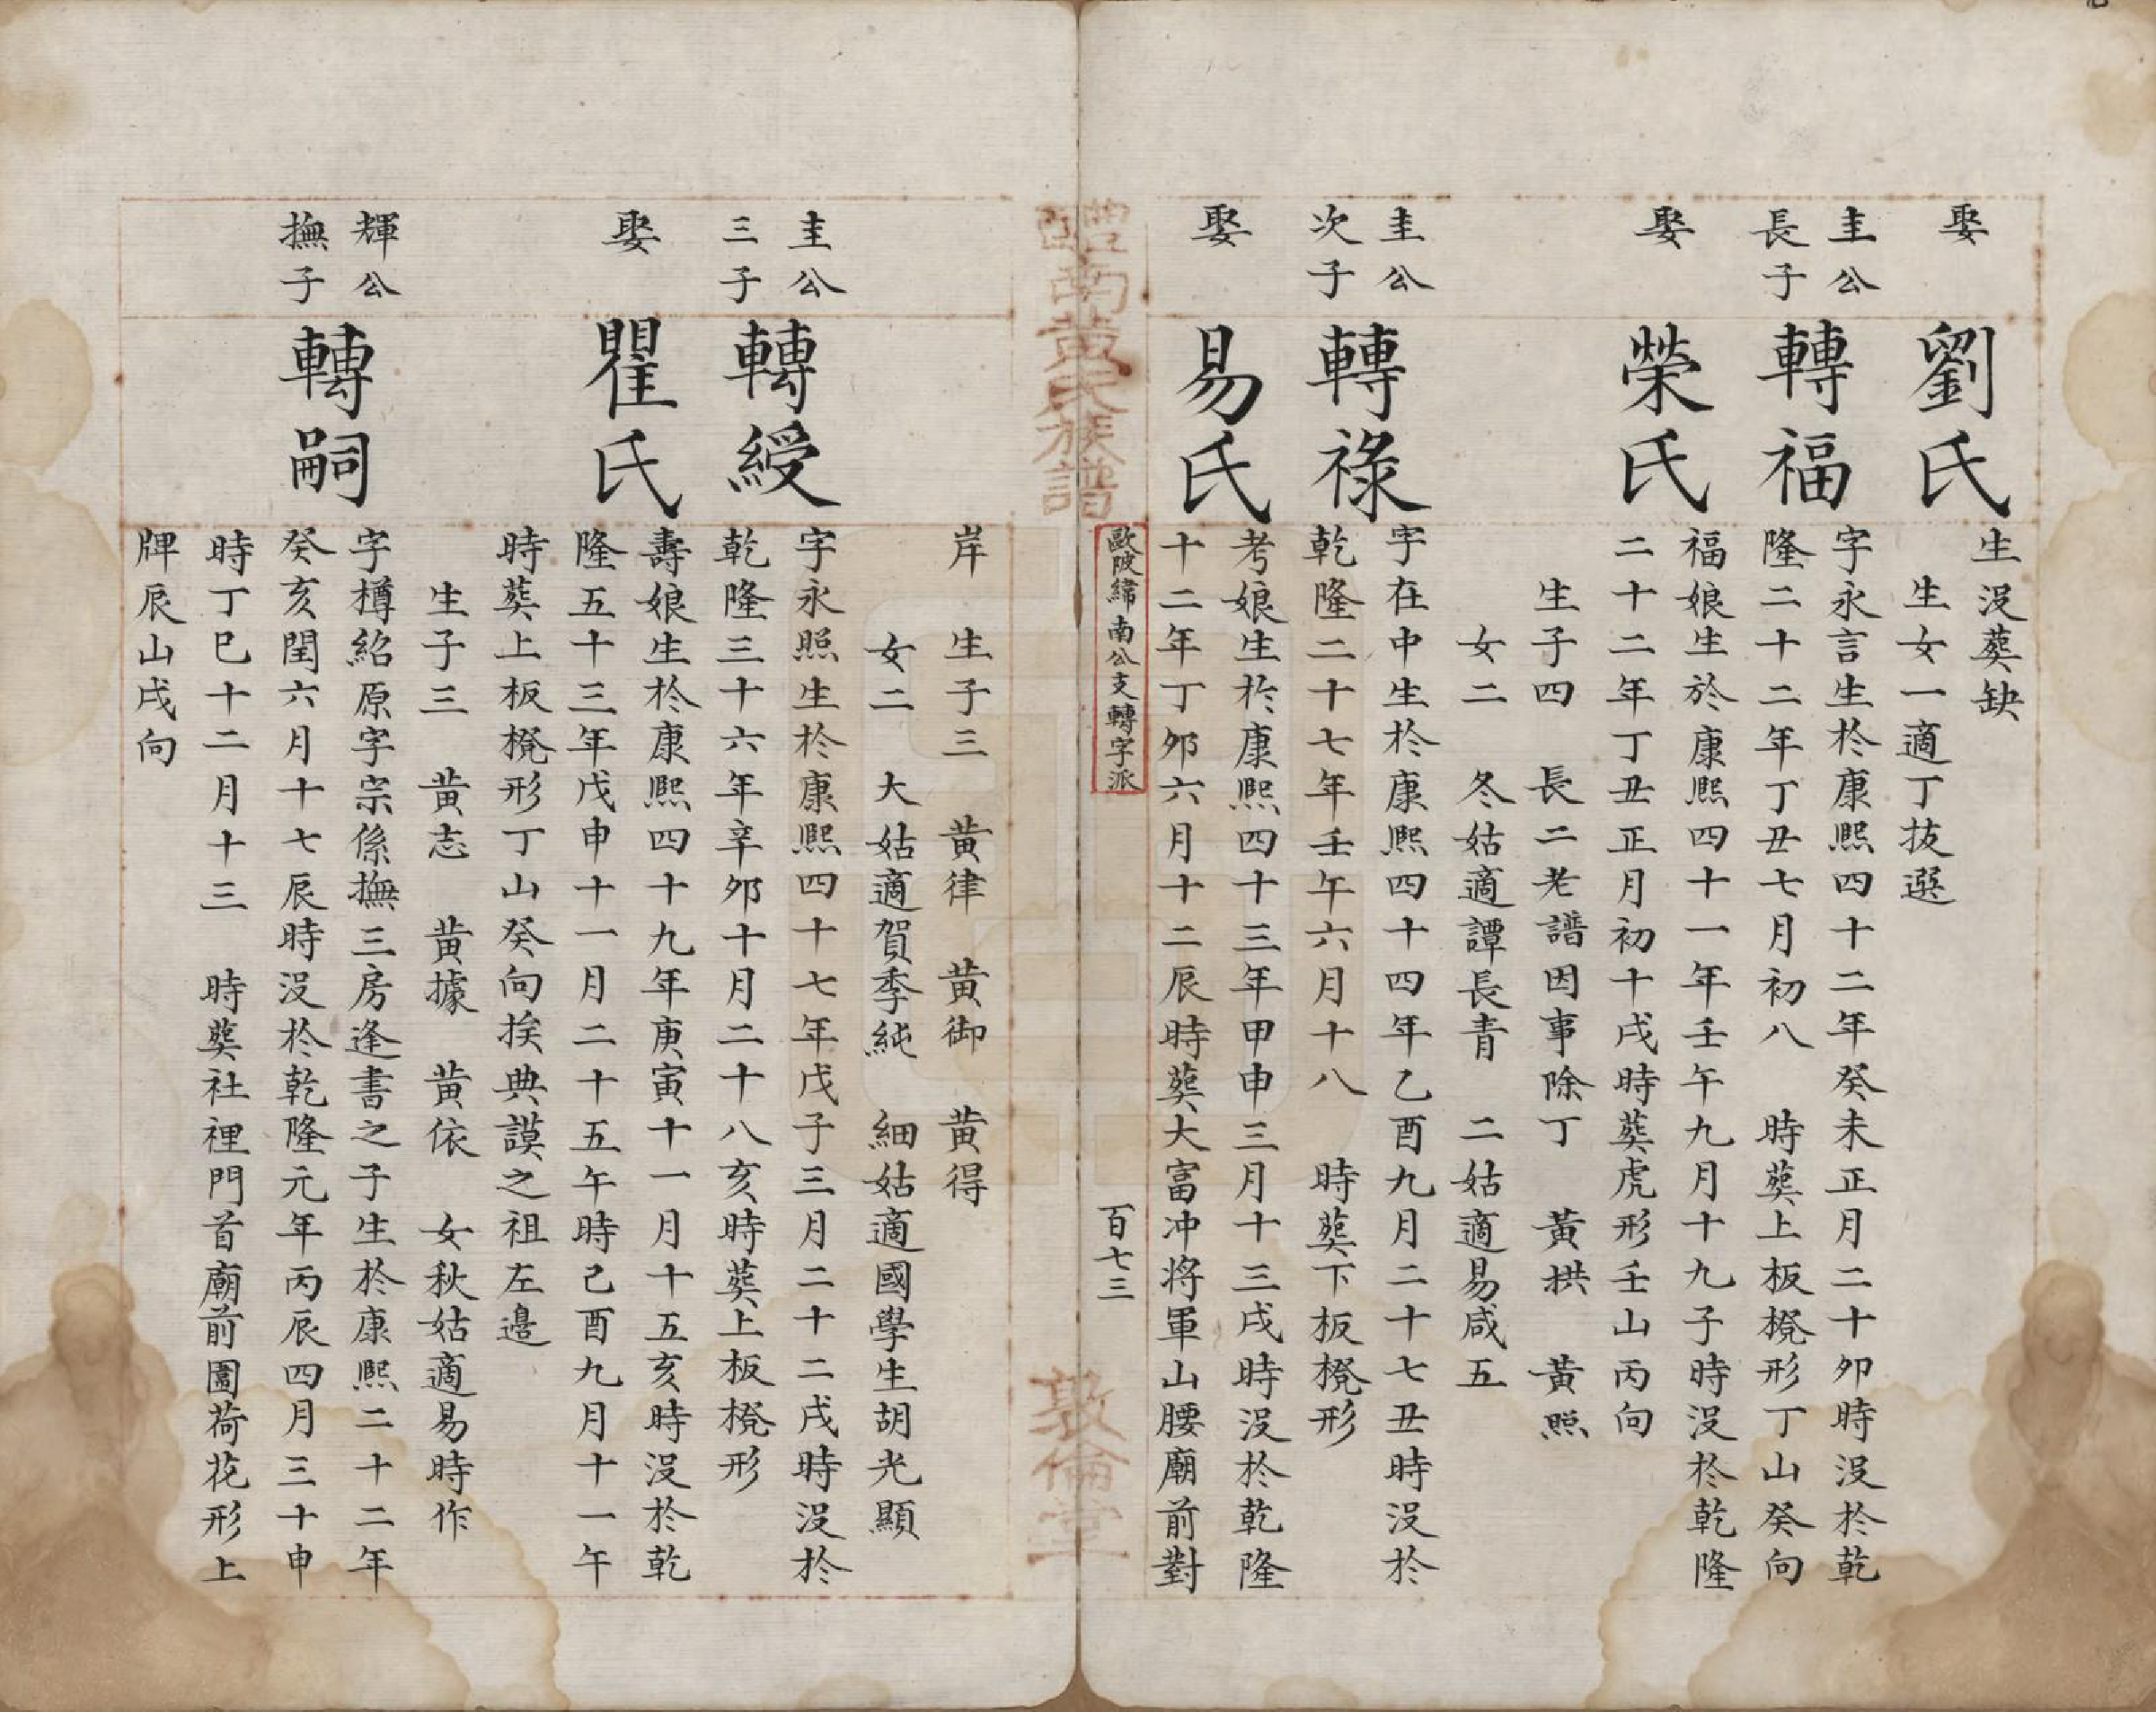 娶
劉氏
生沒葬缺
生女一適丁抜選
圭公
長子
轉福
字永言生於康熙四十二年癸未正月二十卯時沒於乾
隆二十二年丁丑七月初八 時葬上板櫈形丁山癸向
娶
榮氏
福娘生於康熙四十一年壬午九月十九子時沒於乾隆
二十二年丁丑正月初十戌時葬虎形壬山丙向
生子四 長二老譜因事除丁 黃拱 黃照
女二 冬姑適譚長青 二姑適易咸五
圭公
次子
轉祿
字在中生於康熙四十四年乙酉九月二十七丑時沒於
乾隆二十七年壬午六月十八 時葬下板櫈形
娶
易氏
考娘生於康熙四十三年甲申三月十三戌時沒於乾隆
十二年丁夘六月十二辰時葬大富冲将軍山腰廟前對
醴南黃氏族譜
歐陂緯南公支轉字派
百七三
敦倫堂
岸 生子三 黃律 黃御 黃得
女二 大姑適賀季純 細姑適國學生胡光顯
圭公
三子
轉綬
字永照生於康熙四十七年戊子三月二十二戌時沒於
乾隆三十六年辛夘十月二十八亥時葬上板櫈形
娶
瞿氏
壽娘生於康熙四十九年庚寅十一月十五亥時沒於乾
隆五十三年戊申十一月二十五午時己酉九月十一午
時葬上板櫈形丁山癸向挨典謨之祖左邊
生子三 黃志 黃據 黃依 女秋姑適易時作
輝公
撫子
轉嗣
字樽紹原字宗係撫三房逢書之子生於康熙二十二年
癸亥閏六月十七辰時沒於乾隆元年丙辰四月三十申
時丁巳十二月十三 時葬社裡門首廟前園荷花形上
牌辰山戌向